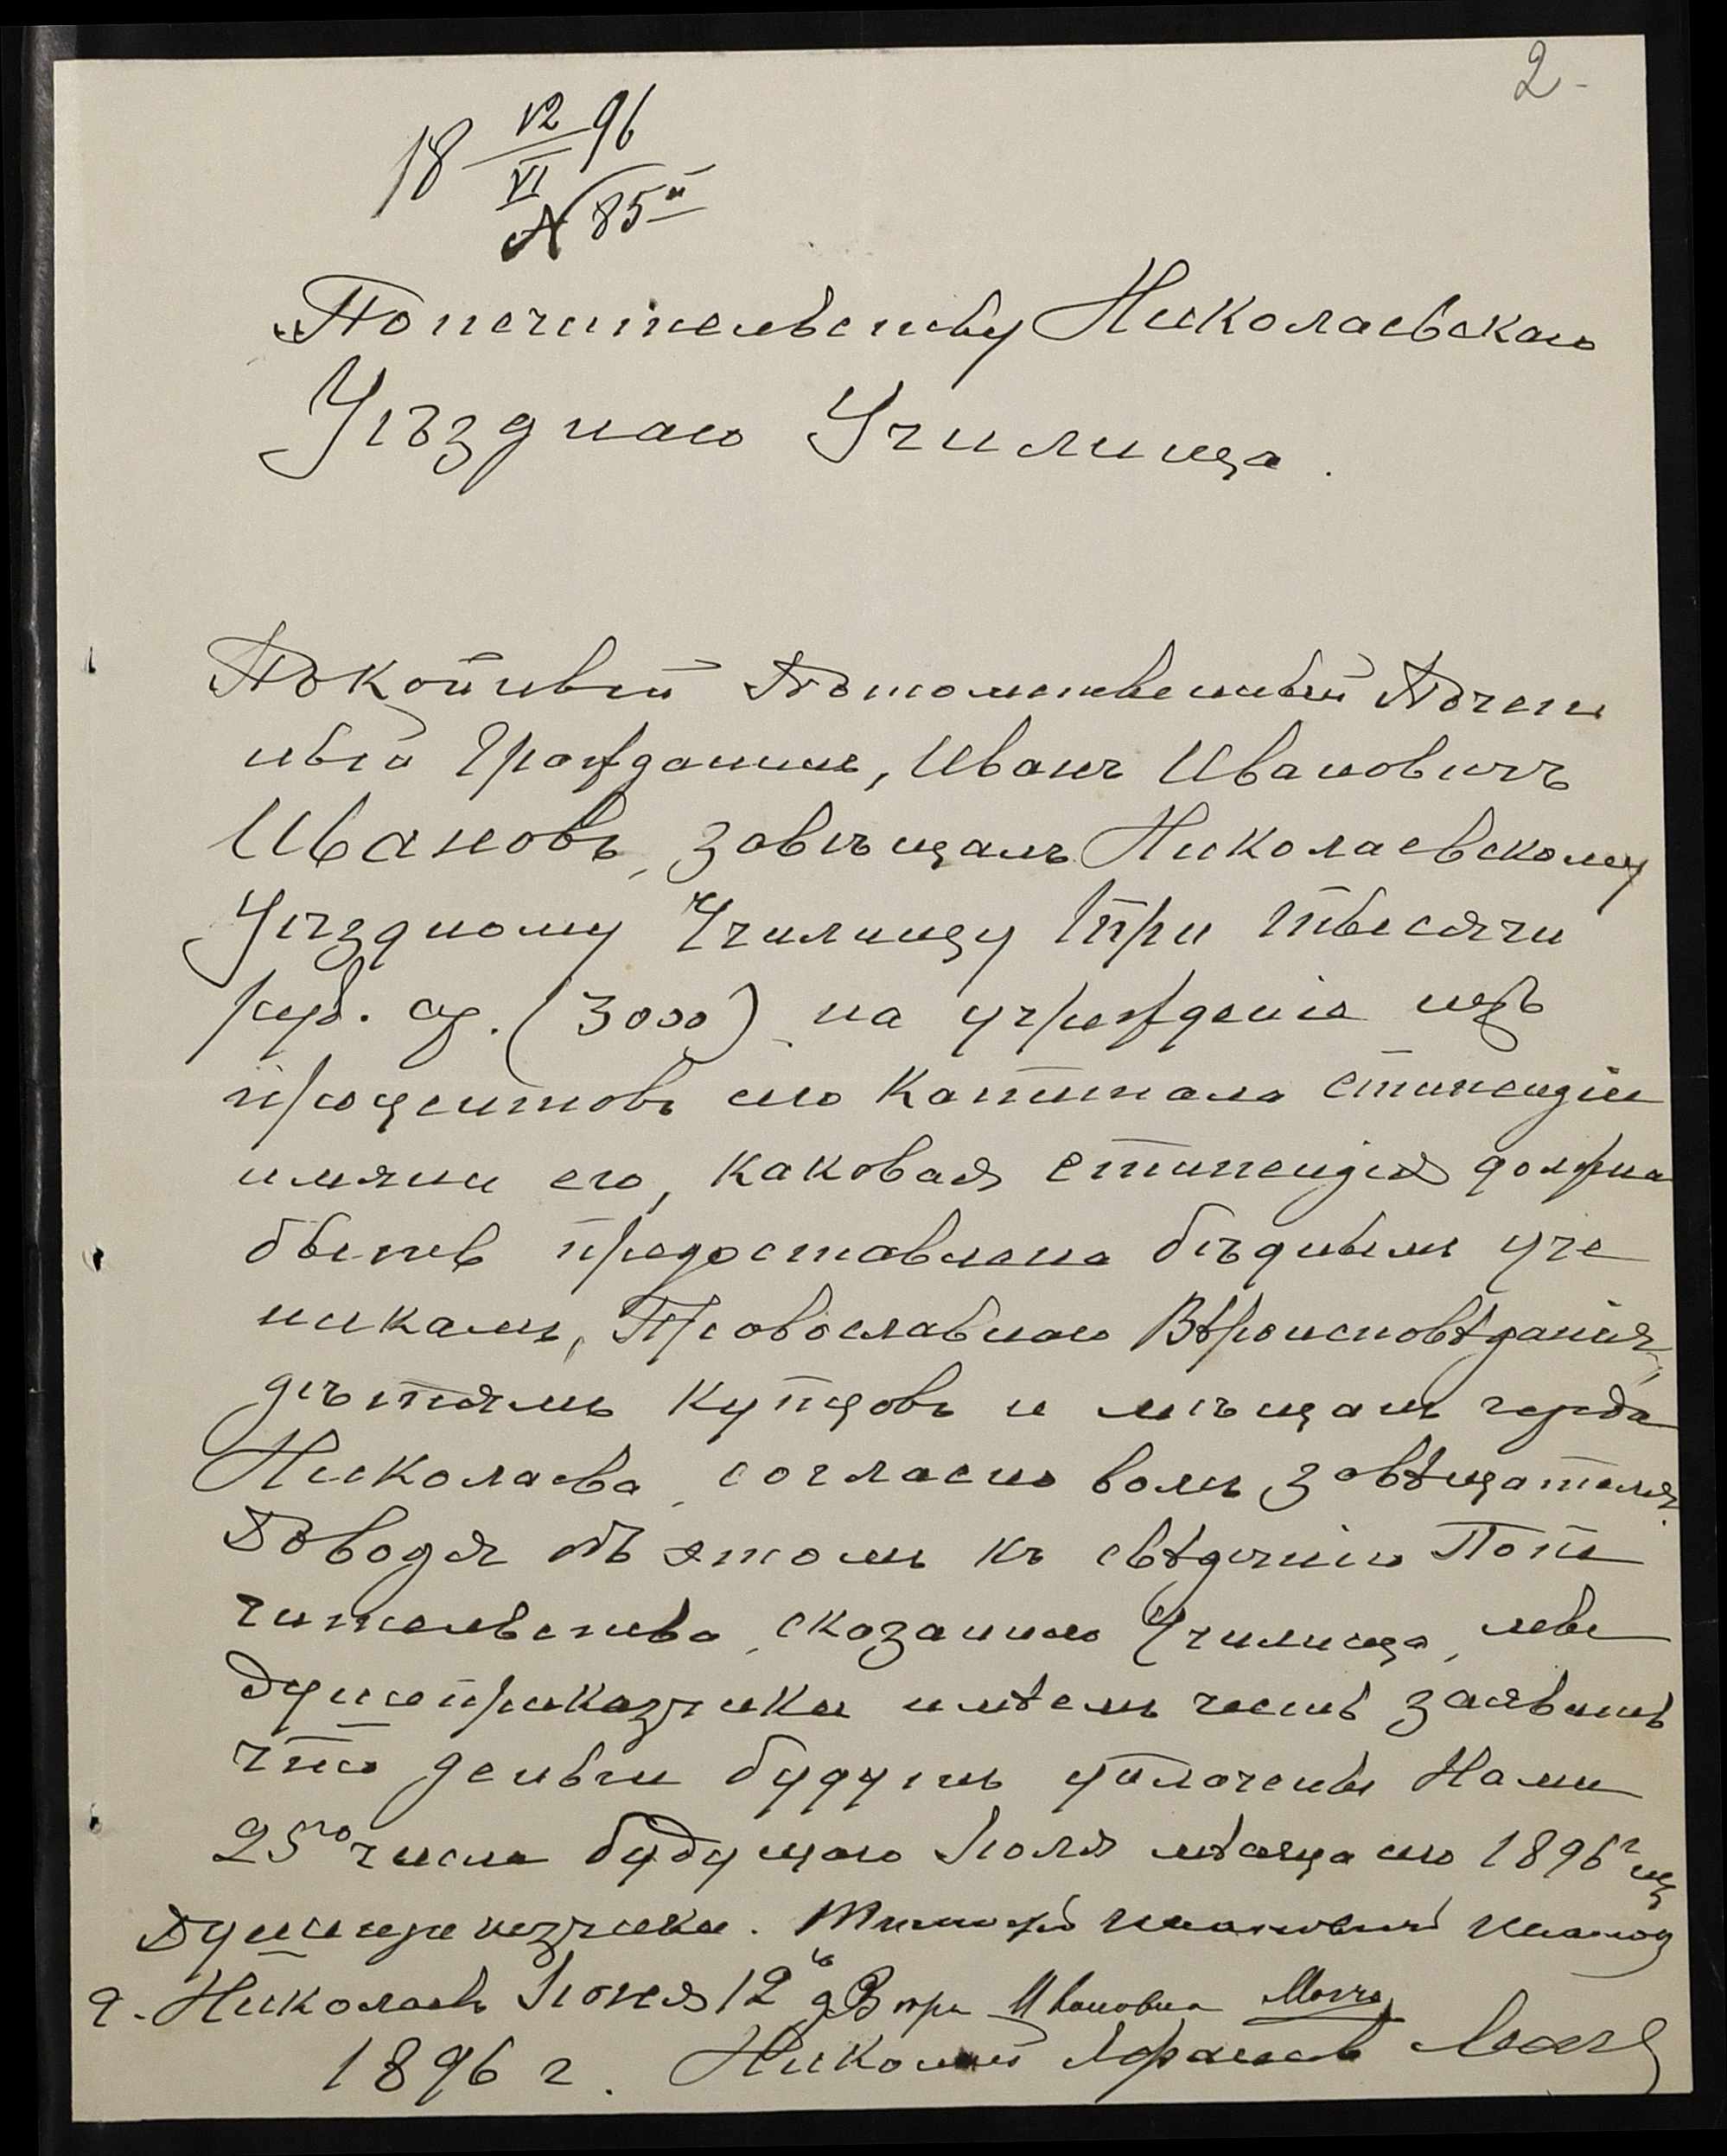 2
18 12/VI 96
№ 85
Попечительству Николаевскаго
Уѣзднаго Училища.
Покойный Потомственный Почен
ный Гражданинъ, Иванъ Ивановичъ
Ивановъ, завѣщалъ Николаевскому
Уѣздному Училищу три тысячи
руб. ср. (3000) на учрежденіе изъ
процентовъ сего капитала стипендіи
имяни его, каковая стипендія должна
быть предоставлена бѣднымъ уче
никамъ, Православнаго Вѣроисповѣданія,
дѣтямъ купцовъ и мѣщанъ города
Николаева, согласно воли завѣщателя.
Доводя объ этомъ къ свѣденію Попе
чительства, сказаннаго Училища, мы
душеприказчики имѣемъ честь заявить
что деньги будутъ уплочены Нами
25го числа будущаго Іюля мѣсяца сего 1896 г.
Душеприказчики.
г. Николаевъ Іюня 12
Николай
1896 г.